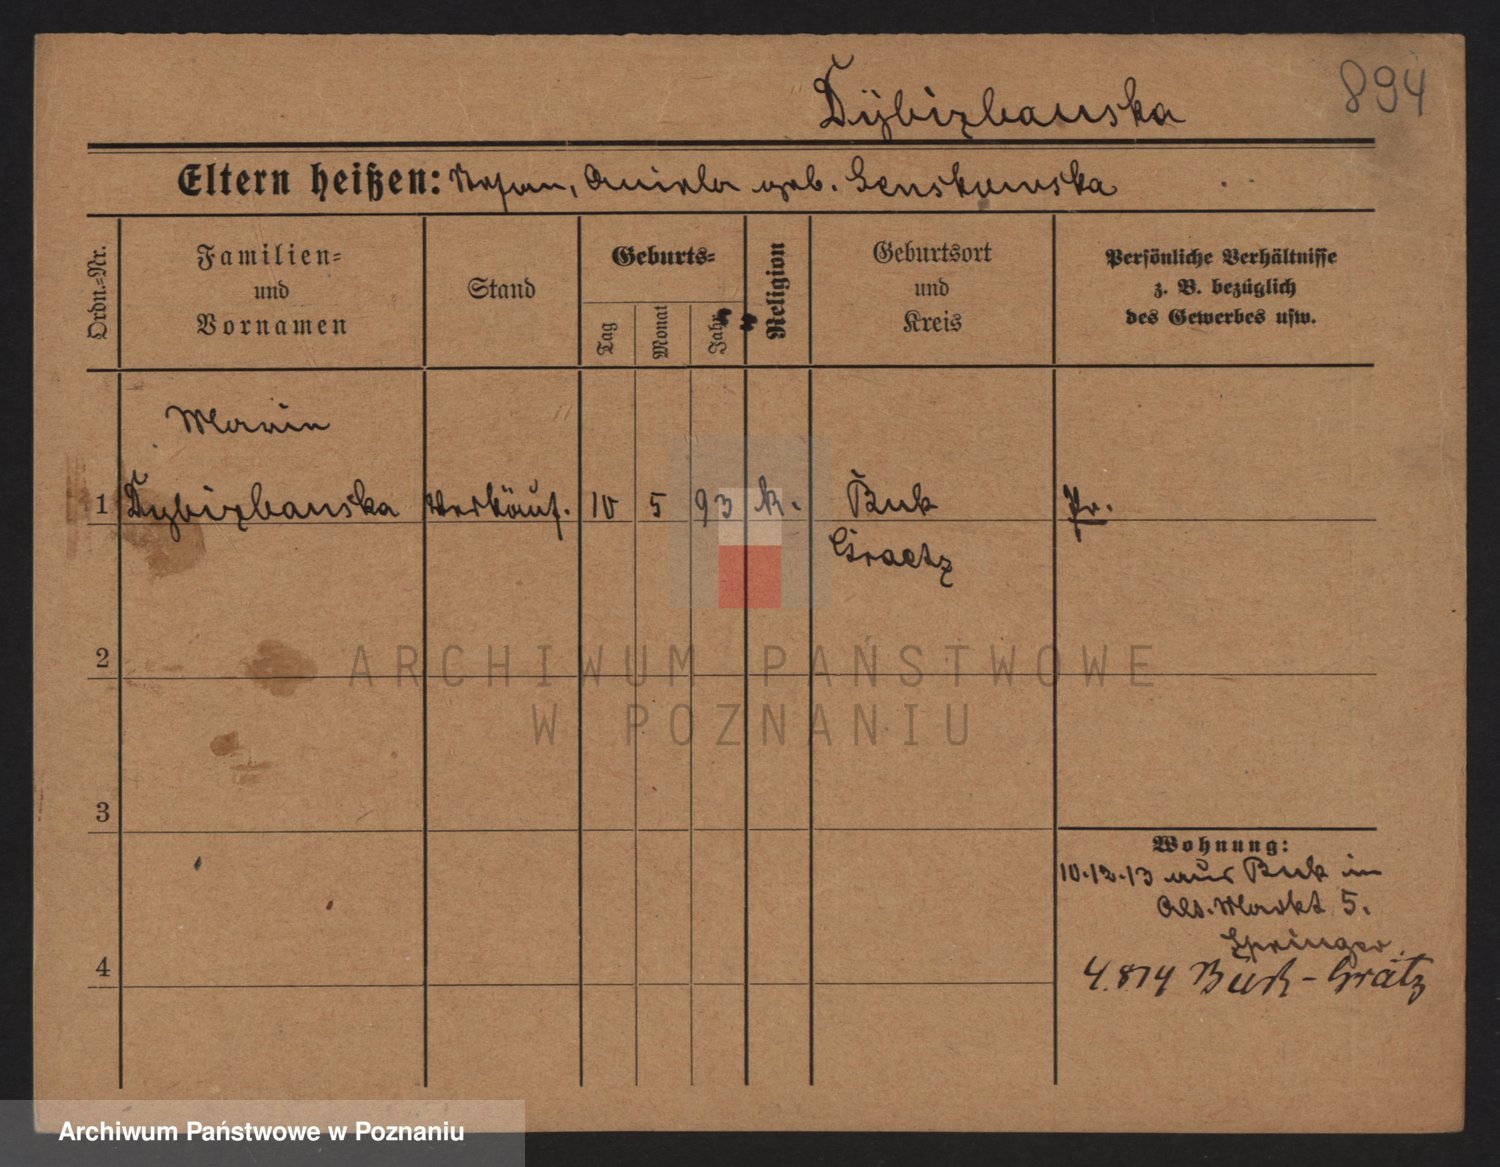 894
Dÿbizbanska
Eltern heißen: Stefan, Aniela geb. Senskowska
Ordn.-Nr.
Familien-
und
Vornamen
Stand
Geburts-
Tag
Monat
Jahr
Religion
Geburtsort
und
Kreis
Persönliche Verhältnisse
z. B. bezüglich
des Gewerbes usw.
Marie
1 Dybizbanska Verkäuf. 10 5 93 k. Buk Pr.
Graetz
2
3
4
Wohnung:
10.12.13 aus Buk in
Alt. Markt 5.
Springer.
4.814 Buk - Grätz
ARCHIWUM PAŃSTWOWE
W POZNANIU
Archiwum Państwowe w Poznaniu